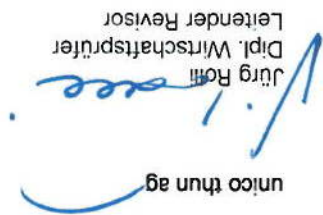 unico thun ag
Jürg Rolli
Dipl. Wirtschaftsprüfer
Leitender Revisor